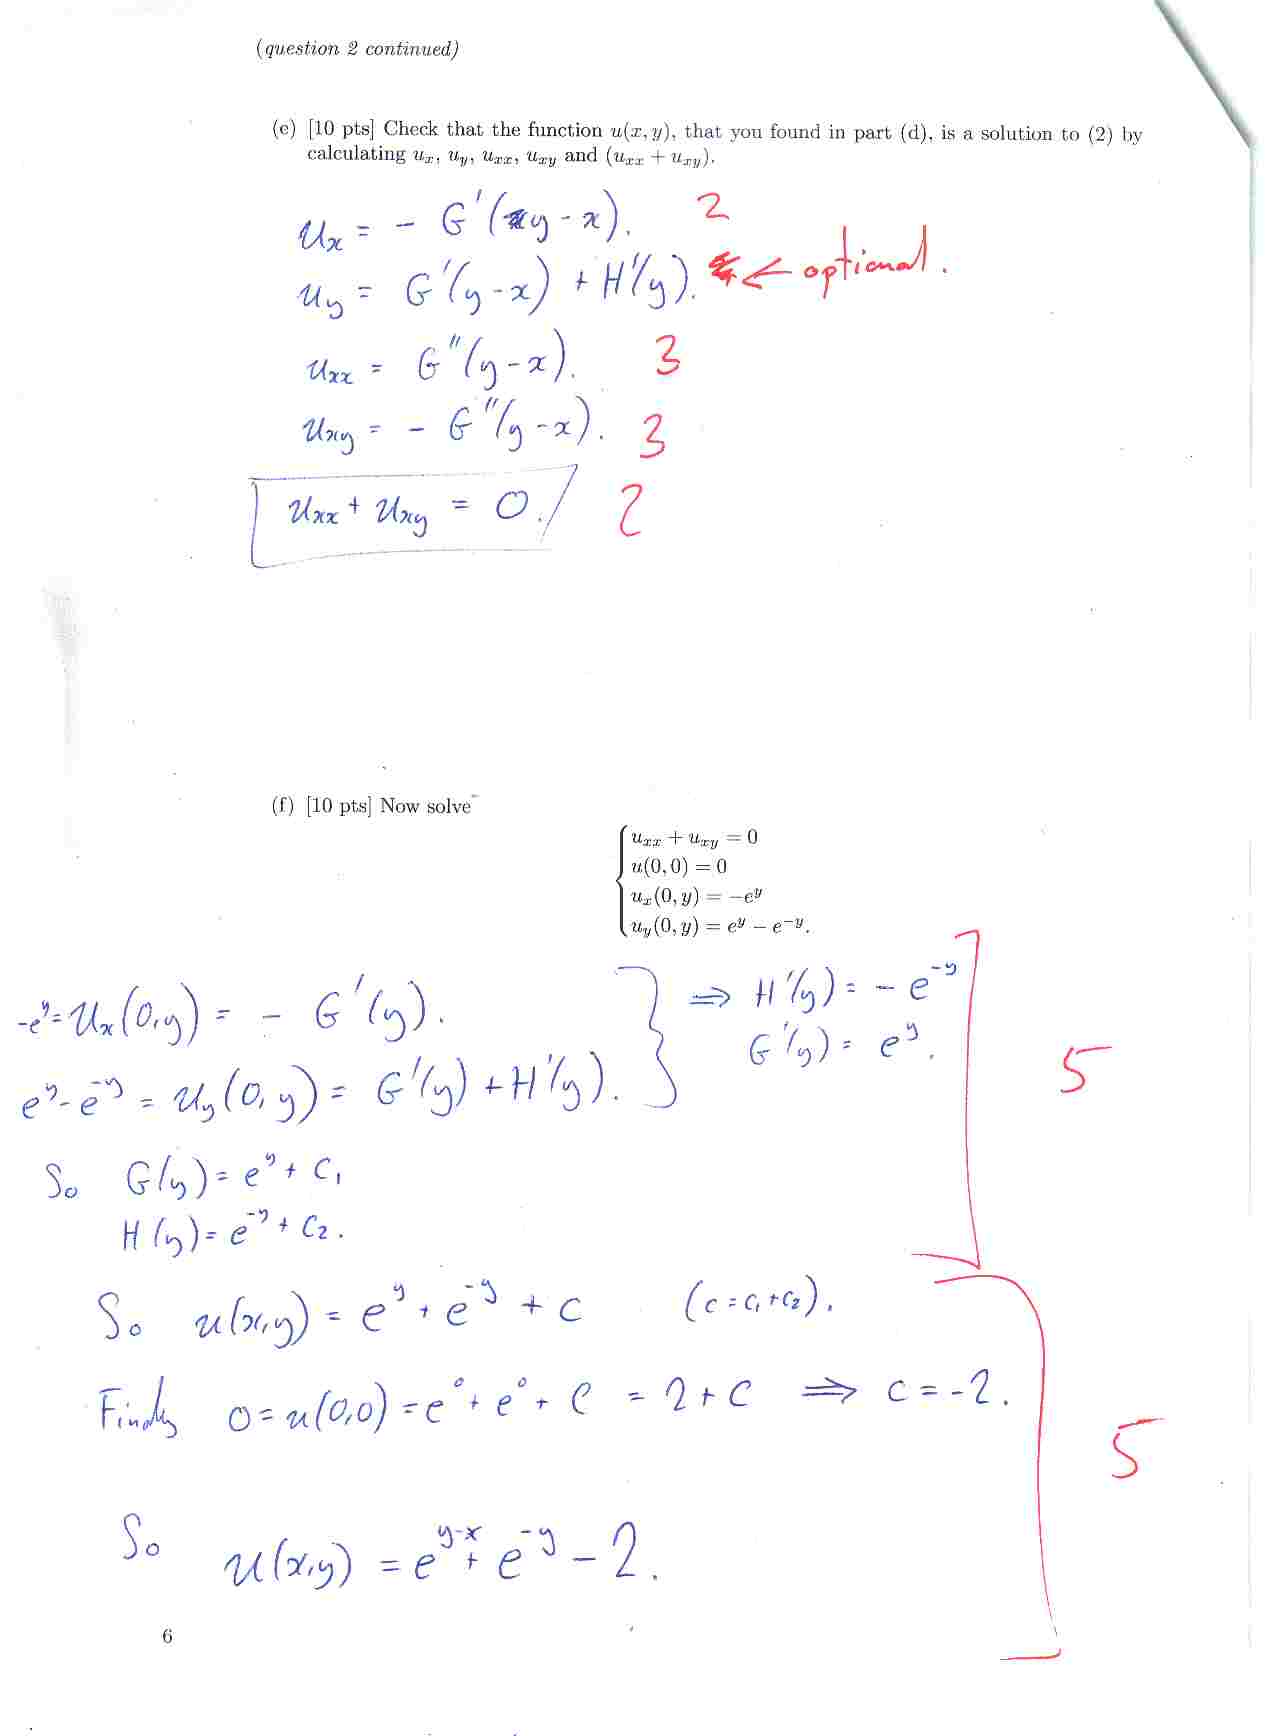 (question 2 continued)
(e) [10 pts] Check that the function u(x, y), that you found in part (d), is a solution to (2) by
calculating u_x, u_y, u_xx, u_xy and (u_xx + u_xy).
u_x = - G'(y-x). 2
u_y = G'(y-x) + H'(y). ← optional.
u_xx = G''(y-x). 3
u_xy = - G''(y-x). 3
u_xx + u_xy = 0. 2
(f) [10 pts] Now solve
u_xx + u_xy = 0
u(0,0) = 0
u_x(0, y) = -e^y
u_y(0, y) = e^y - e^-y.
-e^y = u_x(0,y) = - G'(y). ⇒ H'(y) = - e^-y
G'(y) = e^y. 5
e^y - e^-y = u_y(0, y) = G'(y) + H'(y).
So G(y) = e^y + c_1
H(y) = e^-y + c_2.
So u(x,y) = e^y + e^-y + c (c = c_1 + c_2).
Finally 0 = u(0,0) = e^0 + e^0 + c = 2 + c ⇒ c = -2.
5
So u(x,y) = e^y-x + e^-y - 2.
6